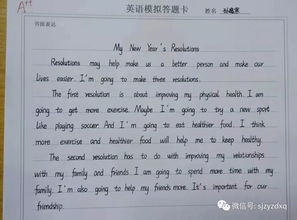 A++
英语模拟答题卡
姓名
书面表达
My New Year's Resolutions
Resolutions may help us be a better person and make our
lives easier. I'm going to make three resolutions.
The first resolution is about improving my physical health. I am
going to get more exercise. Maybe I'm going to try a new sport
like playing soccer. And I'm going to eat healthier food. I think
more exercise and healthier food will help me to keep healthy.
The second resolution has to do with improving my relationships
with my family and friends. I am going to spend more time with my
family. I'm also going to help my friends more. It's important for our
friendship.
微信号: sjzyzdxq